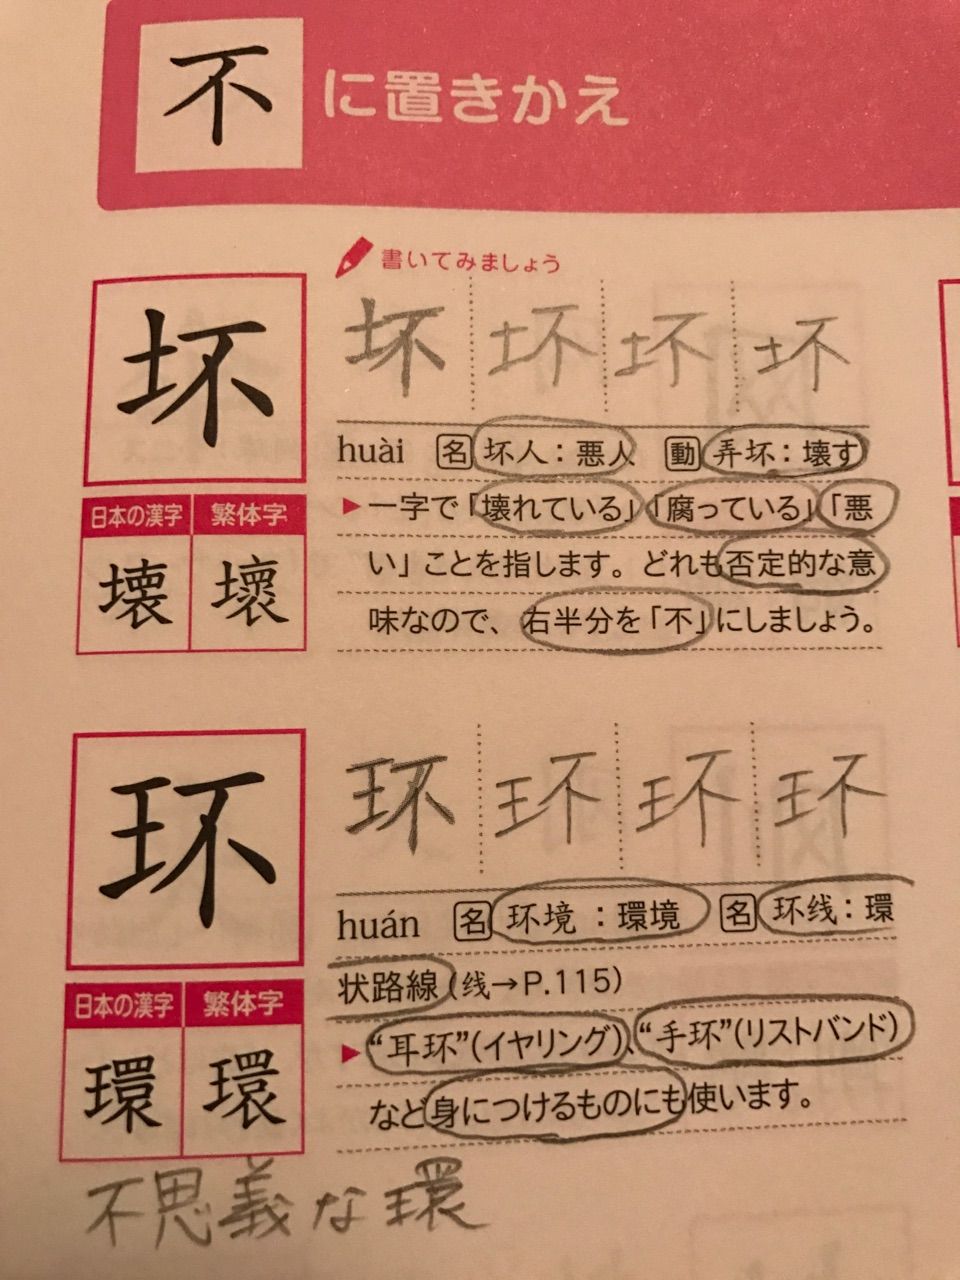 不 に置きかえ
書いてみましょう
坏 坏 坏 坏 坏
huài 名 坏人：悪人 動 弄坏：壊す
▶一字で「壊れている」「腐っている」「悪
い」ことを指します。どれも否定的な意
味なので、右半分を「不」にしましょう。
日本の漢字 繁体字
壊 壞
环 环 环 环 环
huán 名 环境：環境 名 环线：環
状路線（线→P.115）
▶“耳环”（イヤリング）、“手环”（リストバンド）
など身につけるものにも使います。
日本の漢字 繁体字
環 環
不思義な環